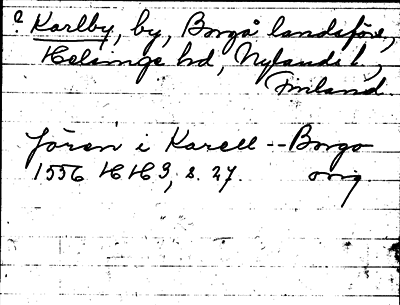 ? Karlby, by, Borgå landsförs,
Helsinge hd, Nylands l,
Finland.
Jören i Karell -- Borgo
1556 HH3, s. 27. orig